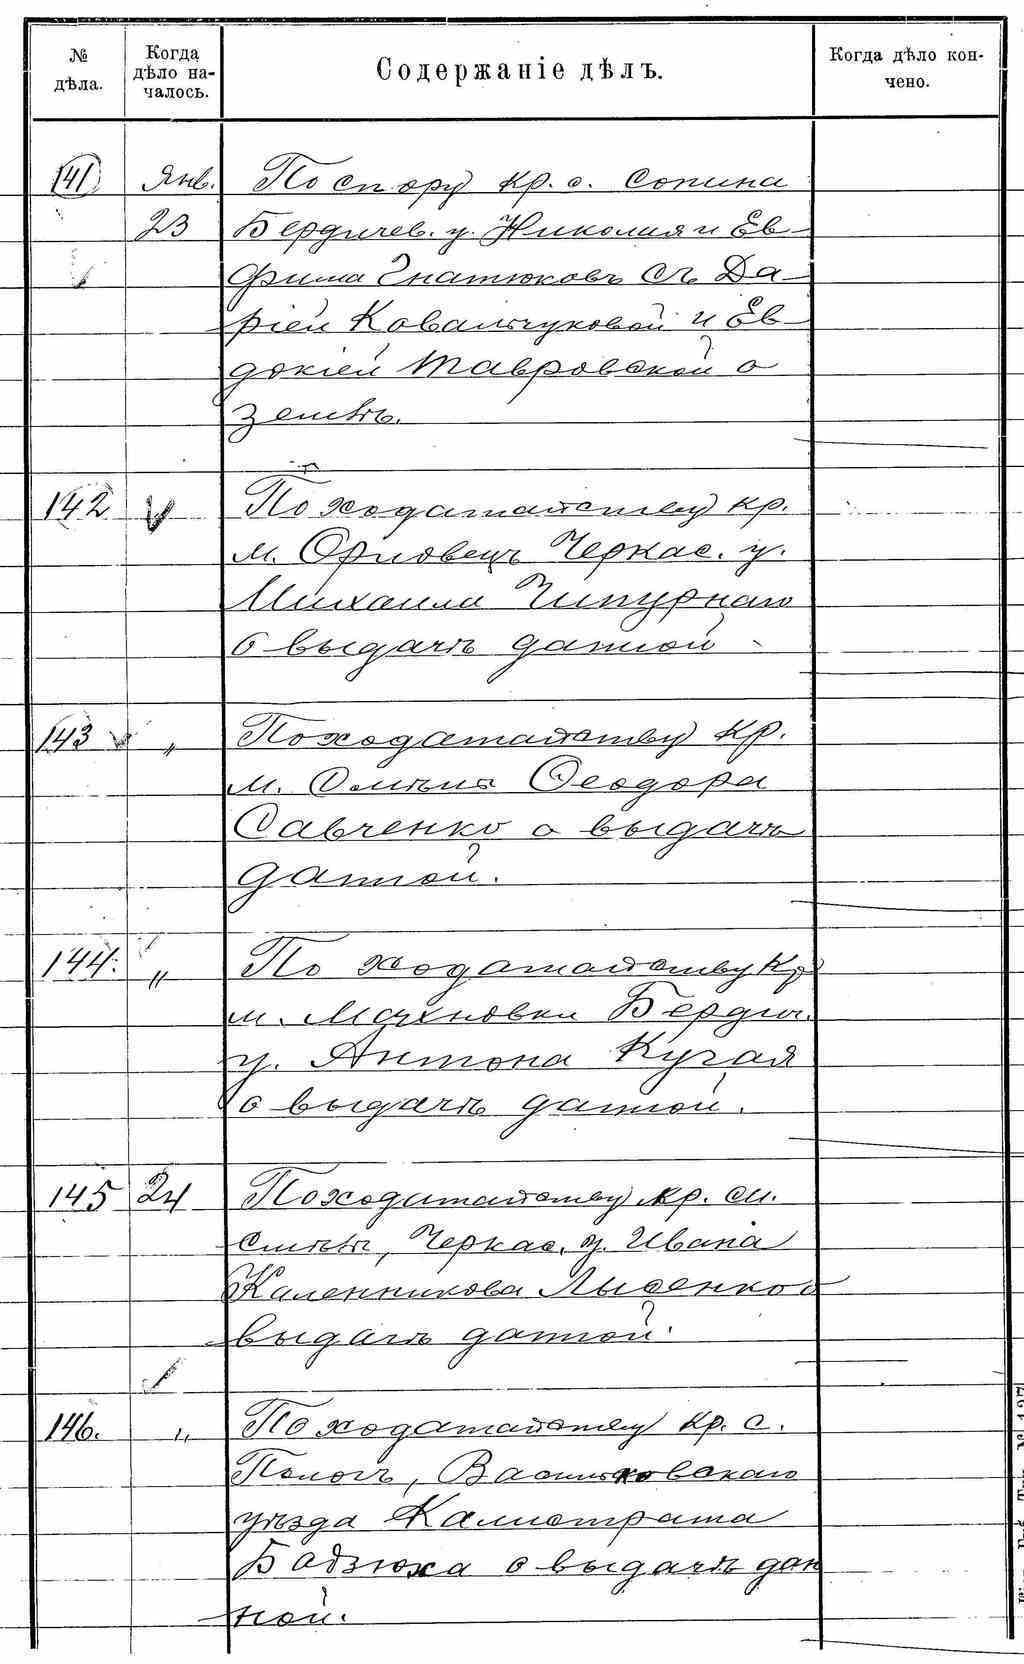 № дѣла.
Когда дѣло на-
чалось.
Содержаніе дѣлъ.
Когда дѣло кон-
чено.
141 Янв. По спору кр. с. Сопина
23 Бердичев. у. Николая и Ев-
фима Гнатюковъ съ Да-
ріей Ковальчуковой и Ев-
докіей Тавровской о
землѣ.
142 По ходатайству кр.
м. Орловецъ Черкас. у.
Михаила Чипурнаго
о выдачѣ данной
143 " По ходатайству кр.
м. Ѳеодора
Савченко о выдачѣ
данной.
144. " По ходатайству кр
м. Махновки Бердич.
у. Антона Кугая
о выдачѣ данной.
145 24 По ходатайству кр. м.
Смѣлы, Черкас. у. Ивана
Каленникова Лысенко о
выдачѣ данной.
146. " По ходатайству кр. с.
Пологъ, Васильковскаго
уѣзда Калистрата
Бадзюха о выдачѣ дан
ной.